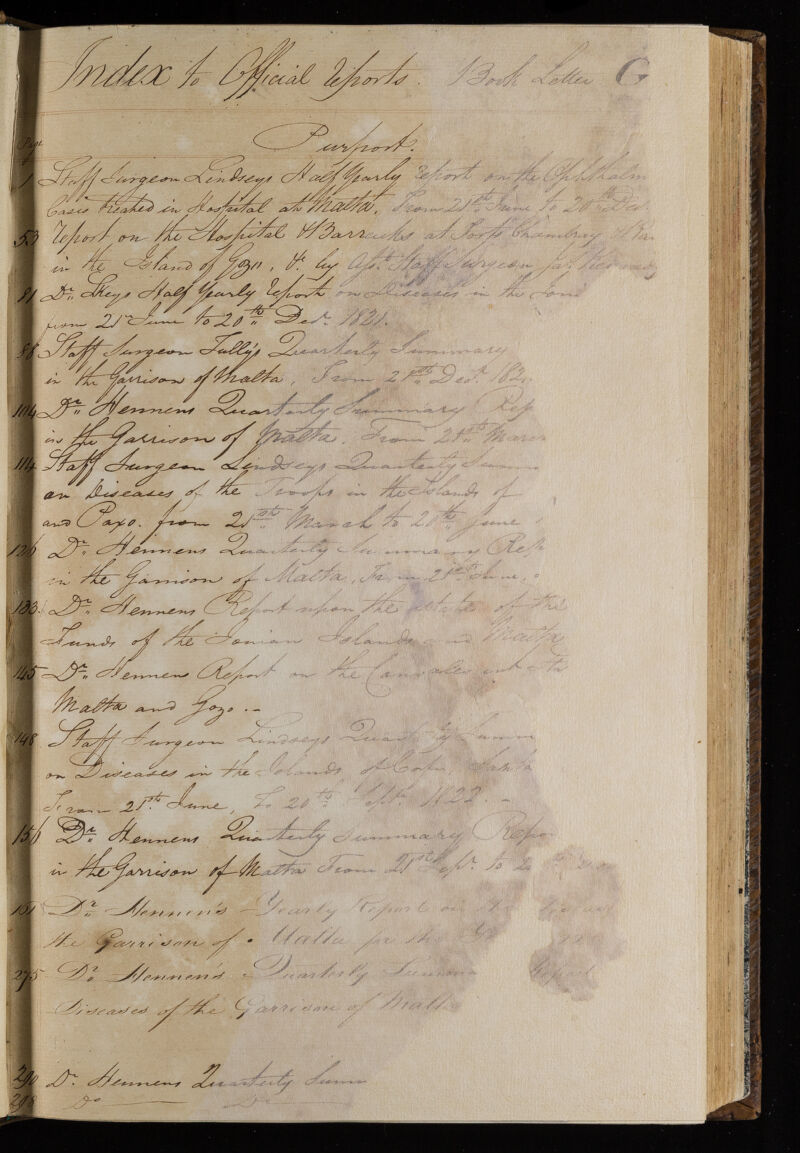 Index to Official Reports. Book Letter G
Page
Purport.
1 Staff Surgeon Lindseys Half Yearly Report on the Ophthalm
Cases treated in Hospital at Malta, From 21st June to 20th Decr.
53 Report on the Hospital & Barracks at Fort Chambray
in the Island of Gozo, &. by Staff Surgeon
81 Dr. Half Yearly Report on Diseases in the Ioni
from 21st June to 20th Decr. 1821.
88 Staff Surgeon Tully's Quarterly Summary
in the Garrison of Malta, From 21st Decr. 182
104 Dr. Hennens Quarterly Summary Rep
in the Garrison of Malta. From 21st March
114 Staff Surgeon Lindseys Quarterly Summ
on Diseases of the Troops in the Islands of
and Paxo. from 21st March to 20th June
126 Dr. Hennens Quarterly Summary Rep
in the Garrison of Malta, From 21st June,
133 Dr. Hennens Report upon the state of the
Funds of the Ionian Islands and Malta
145 Dr. Hennens Report on the
Malta and Gozo.
148 Staff Surgeon Lindseys Quarterly Summ
on Diseases in the Islands, of Corfu, Santa
From 21st June, To 20th Septr. 1822.
156 Dr. Hennens Quarterly Summary Repo
in the Garrison of Malta From 21st Septr. to 2
161 Dr. Hennen's Yearly Report on the
the Garrison of Malta for the Y
275 Dr. Hennen's Quarterly Summa Report
Diseases of the Garrison of Malta
290 Dr. Hennens Quarterly Summ
298 Do Do